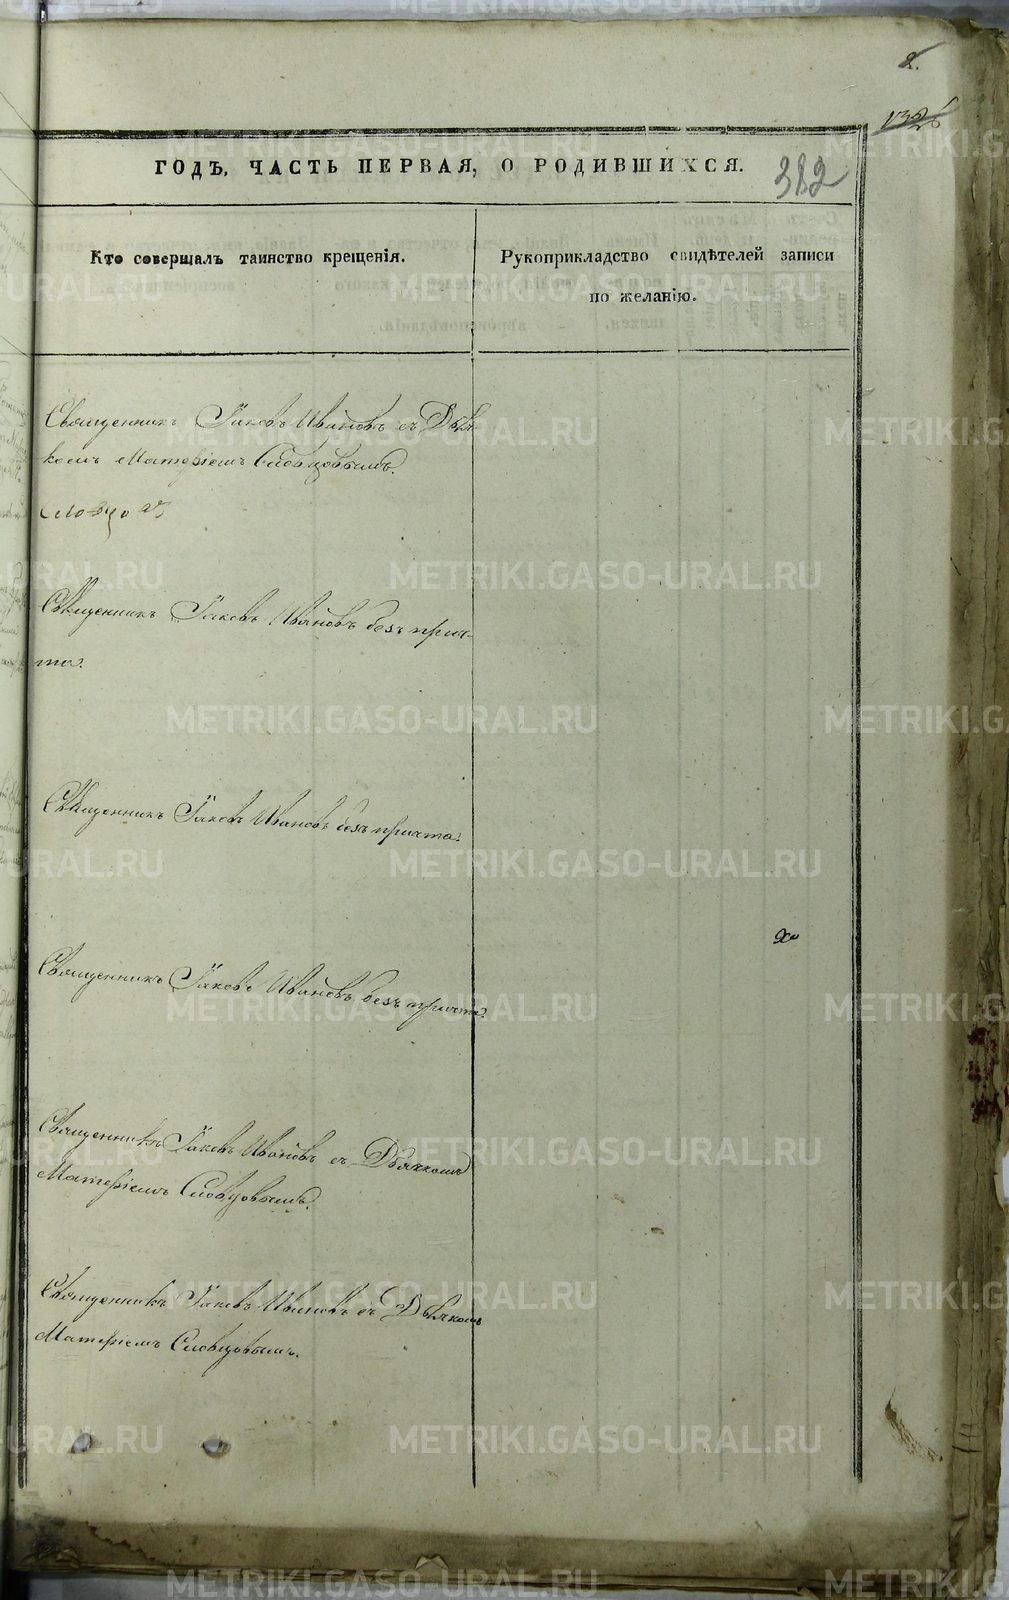 2.
382
ГОДЪ, ЧАСТЬ ПЕРВАЯ, О РОДИВШИХСЯ.
Кто совершалъ таинство крещенія.
Рукоприкладство свидѣтелей записи
по желанію.
Священникъ Іаковъ Ивановъ съ Дьяч-
комъ Матѳіемъ Словцовымъ.
Священникъ Іаковъ Ивановъ безъ прич-
та.
Священникъ Іаковъ Ивановъ безъ причта.
Священникъ Іаковъ Ивановъ безъ причта.
Священникъ Іаковъ Ивановъ съ Дьячкомъ
Матѳіемъ Словцовымъ.
Священникъ Іаковъ Ивановъ съ Дьячкомъ
Матѳіемъ Словцовымъ.
METRIKI.GASO-URAL.RU